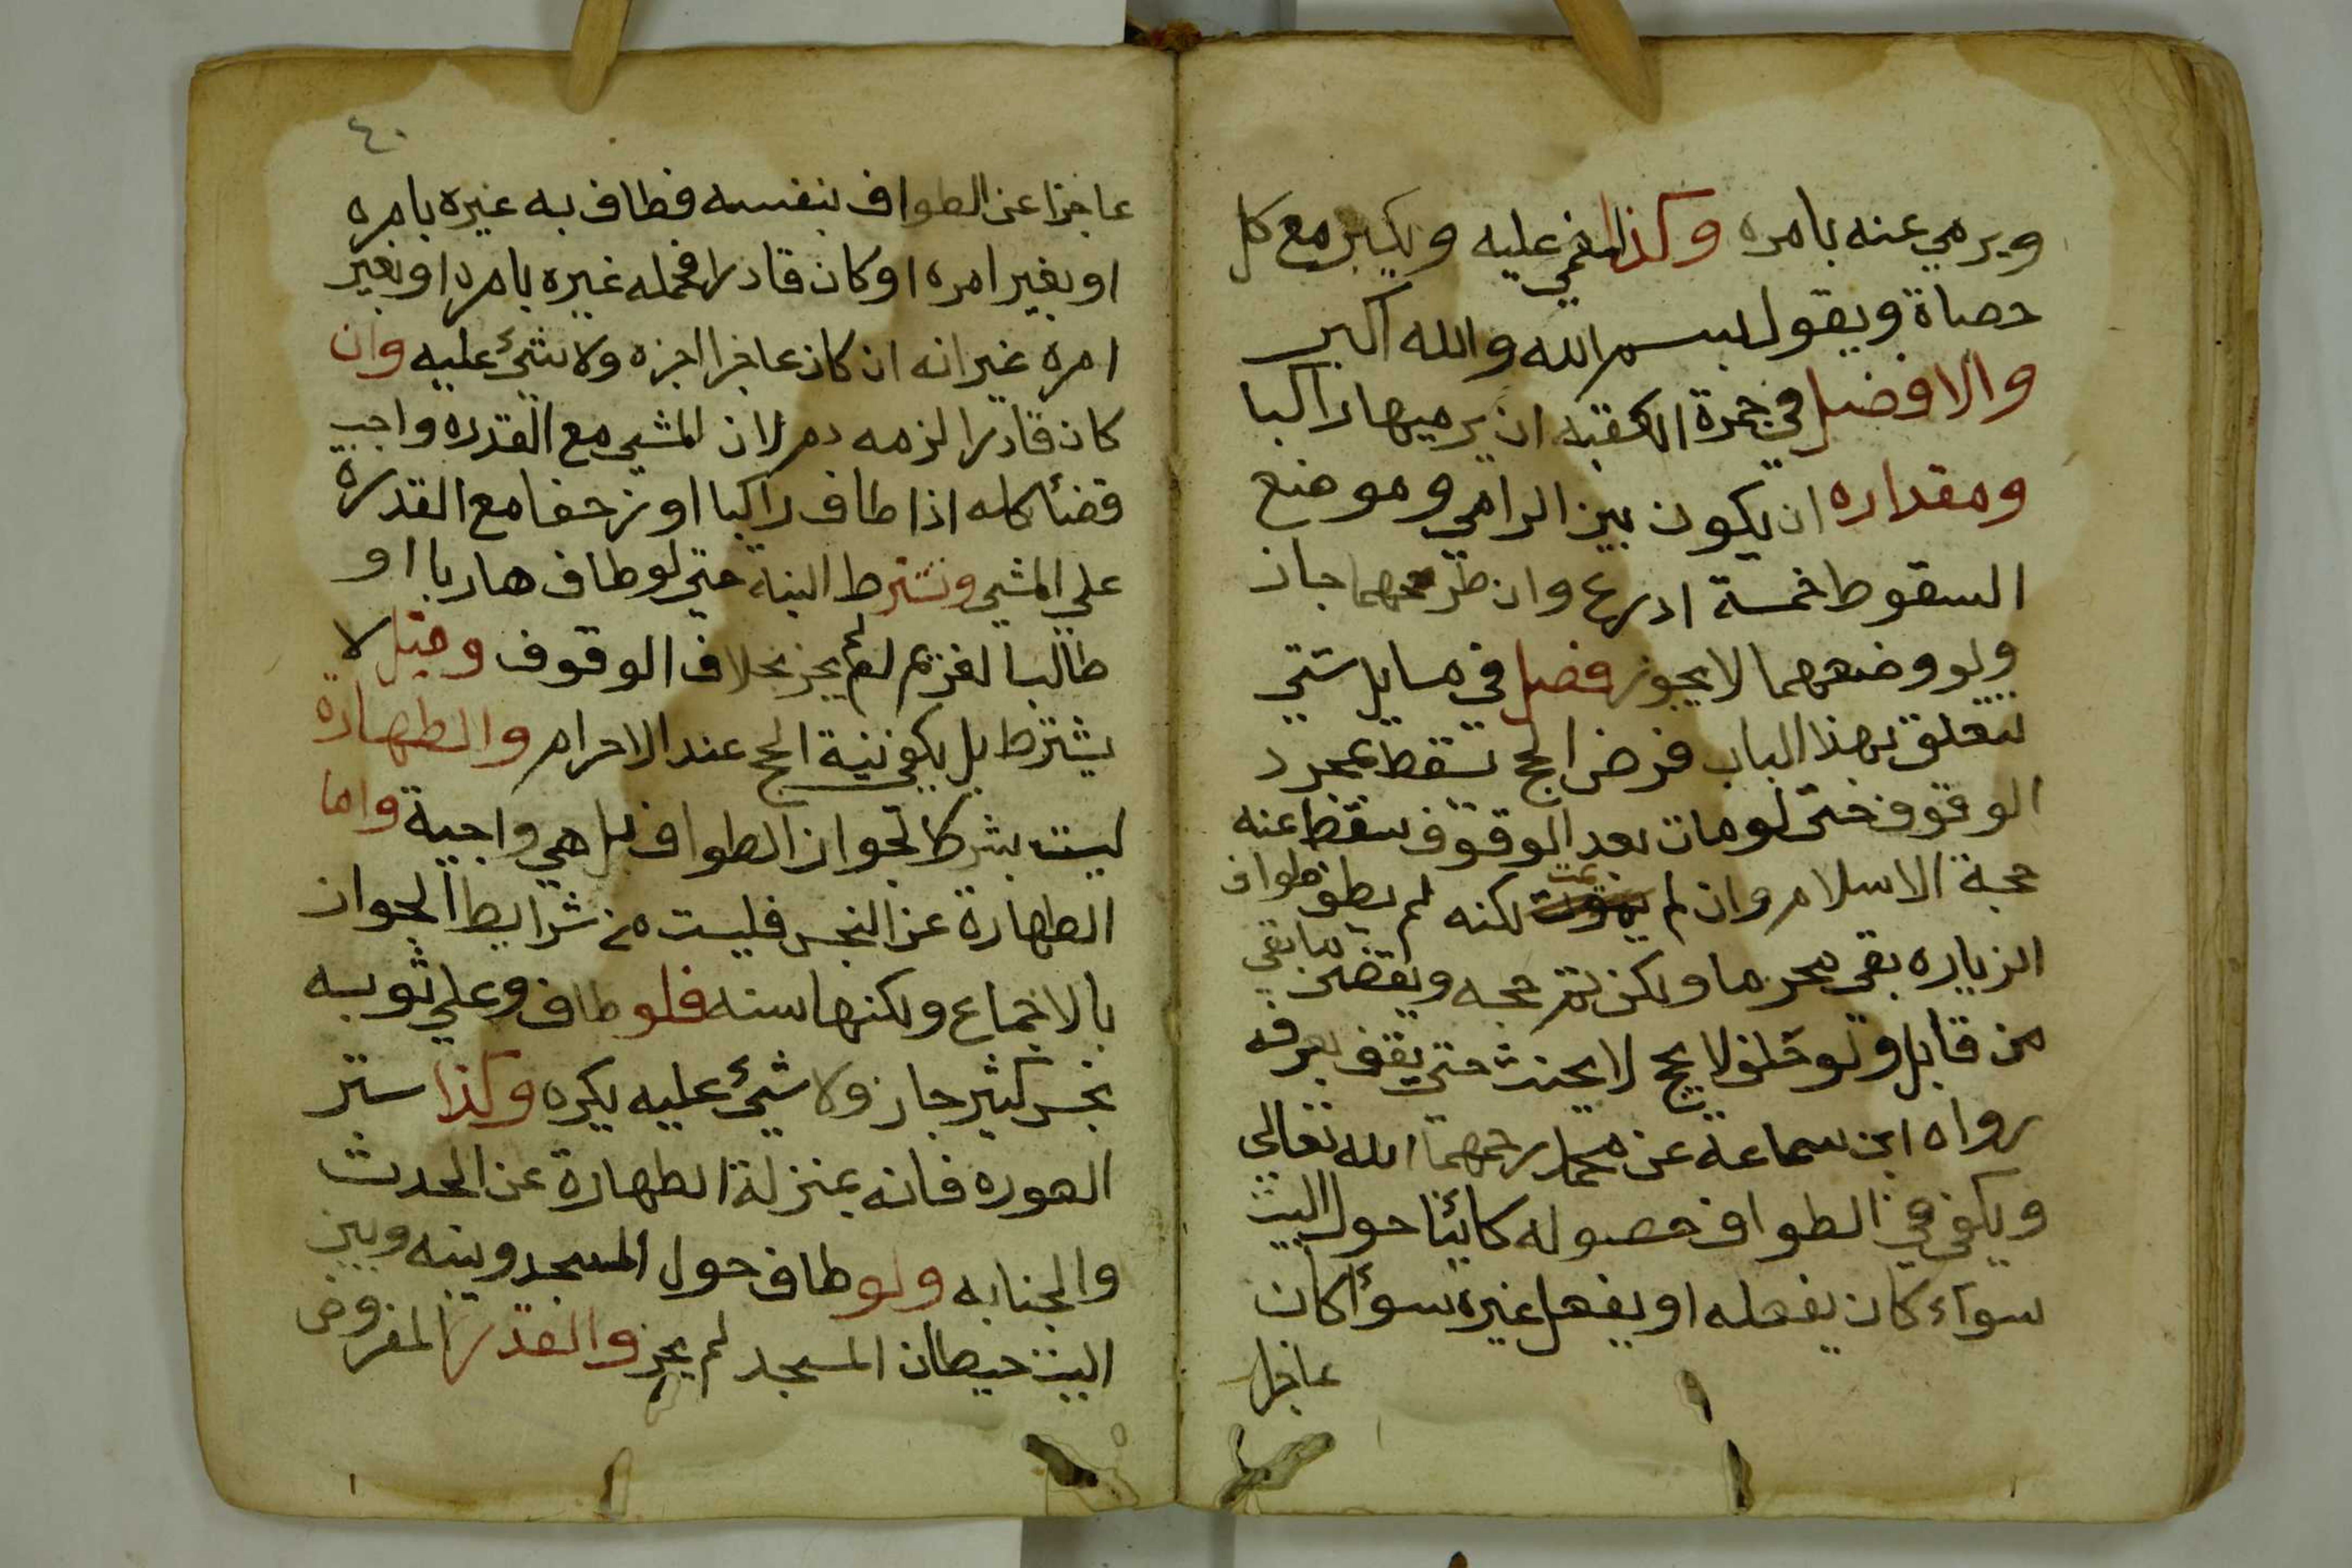 ويرمي عنه بامره وكذا المغمي عليه ويكبر مع كل
حصاة ويقول بسم الله والله اكبر
والافضل في جمرة العقبه ان يرميها راكبا
ومقداره ان يكون بين الرامي وموضع
السقوط خمسة ادرع وان طرحهما جاز
ولو وضعهما لا يجوز فصل في مسايل شتي
تتعلق بهذا الباب فرض الحج تسقط بمجرد
الوقوف حتى لومات بعد الوقوف سقط عنه
حجة الاسلام وان لم يمت لكنه لم يطف طواف
الزياره بقي محرما ولكن تم حجه ويقضي ما بقي
من قابل ولو حلف لا يحج لا يحنث حتي يقف بعرفه
رواه ابن سماعة عن محمد رحمهما الله تعالى
ويكفي في الطواف حصوله كائنا حول البيت
سواء كان بفعله او بفعل غيره سوأ كان
عاجزا
٤٠
عاجزا عن الطواف بنفسه فطاف به غيره بامره
او بغير امره او كان قادرا فحمله غيره بامره او بغير
امره غير انه ان كان عاجزا اجزه ولا شئ عليه وان
كان قادرا لزمه دم لان المشي مع القدره واجب
فصار كله اذا طاف راكبا او زحفا مع القدرة
علي المشي وتشترط النية حتي لو طاف هاربا او
طالبا لغريم لم يجز بخلاف الوقوف وقيل لا
يشترط بل يكفي نية الحج عند الاحرام والطهاره
ليست بشرط لجواز الطواف بل هي واجبة واما
الطهارة عن النجس فليست من شرايط الجواز
بالاجماع ولكنها سنه فلو طاف وعلي ثوبه
نجس كثير جاز ولا شئ عليه يكره وكذا ستر
العوره فانه بمنزلة الطهارة عن الحدث
والجنابه ولو طاف حول المسجد وبينه وبين
البيت حيطان المسجد لم يجز والقدر المفروض